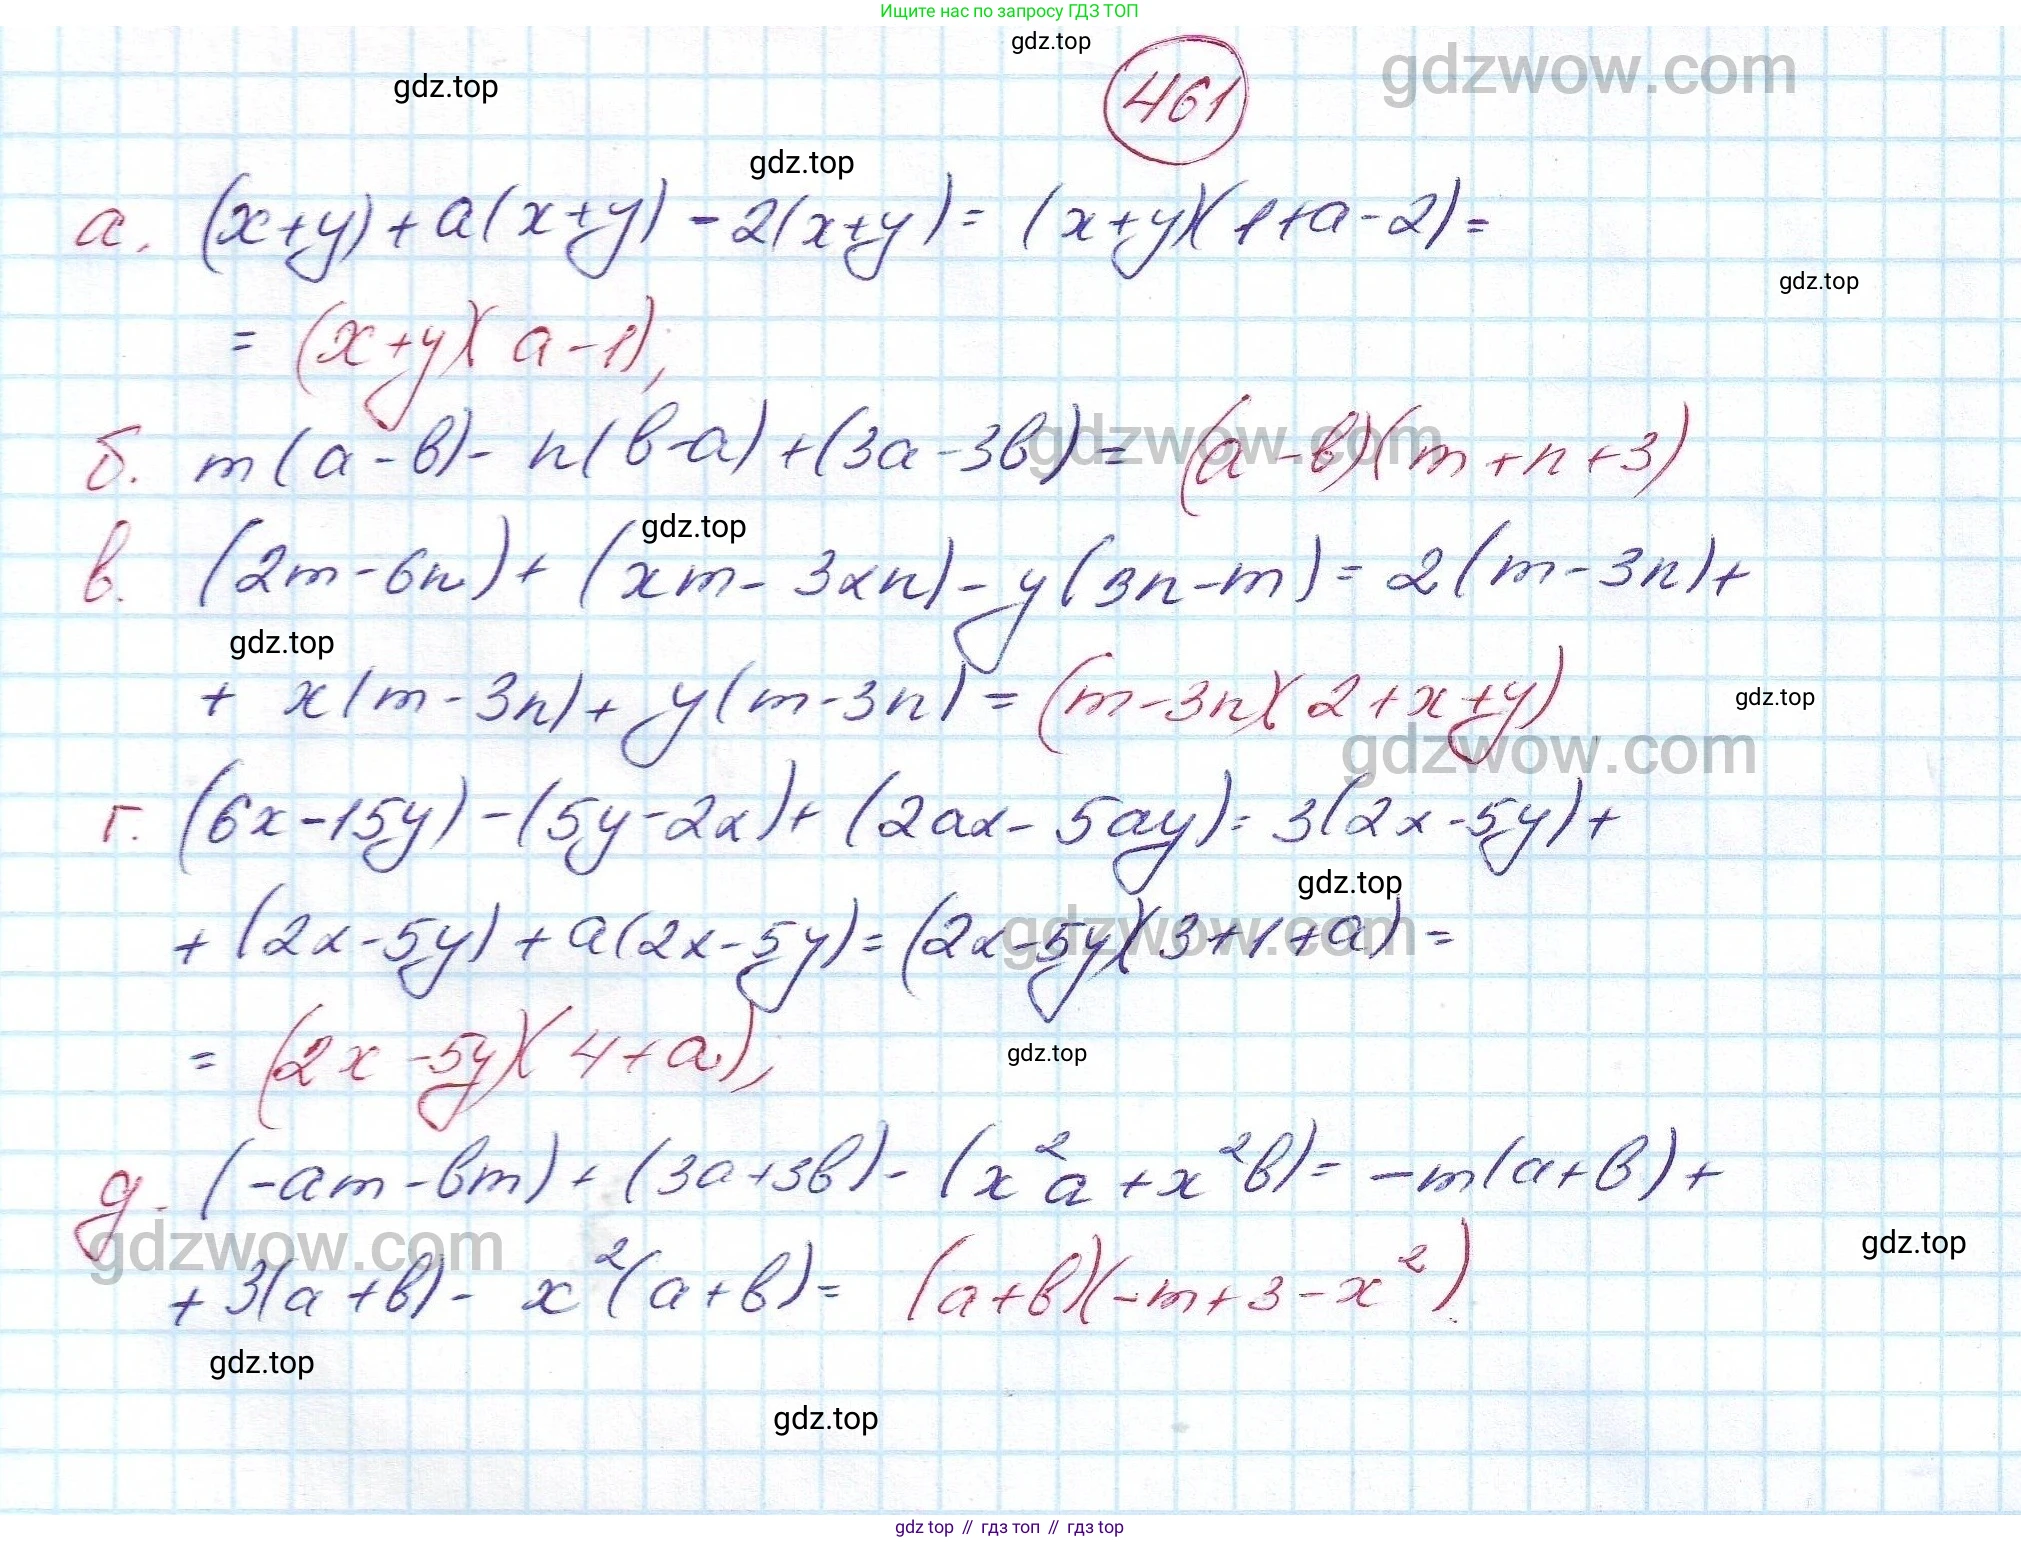 Ищите нас по запросу ГДЗ ТОП
gdz.top
461
gdzwow.com
gdz.top
gdz.top
а. (x+y)+a(x+y)-2(x+y)= (x+y)(1+a-2)=
gdz.top
= (x+y)(a-1);
б. m(a-b)- n(b-a)+(3a-3b)= (a-b)(m+n+3)
gdzwow.com
gdz.top
в. (2m-6n)+ (xm- 3xn)-y(3n-m)= 2(m-3n)+
gdz.top
+ x(m-3n)+ y(m-3n)= (m-3n)(2+x+y)
gdz.top
gdzwow.com
г. (6x-15y)-(5y-2x)+ (2ax- 5ay)= 3(2x-5y)+
gdz.top
+ (2x-5y)+a(2x-5y)= (2x-5y)(3+1+a)=
gdzwow.com
= (2x-5y)(4+a);
gdz.top
д. (-am-bm)+(3a+3b)- (x²a+x²b)= -m(a+b)+
gdzwow.com
gdz.top
+3(a+b)- x²(a+b)= (a+b)(-m+3-x²)
gdz.top
gdz.top
gdz top // гдз топ // гдз top